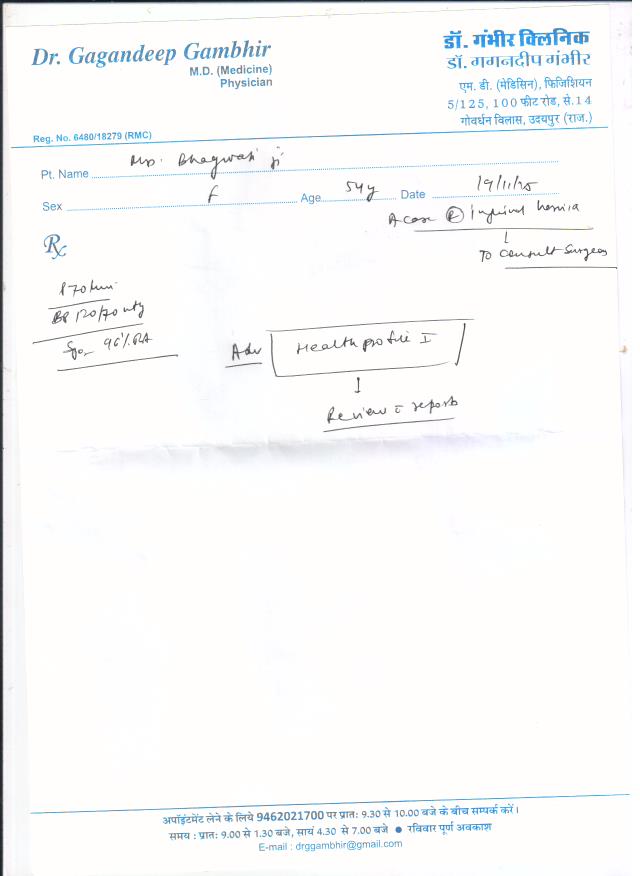 Dr. Gagandeep Gambhir
M.D. (Medicine)
Physician
Reg. No. 6480/18279 (RMC)
डॉ. गंभीर क्लिनिक
डॉ. गगनदीप गंभीर
एम. डी. (मेडिसिन), फिजिशियन
5/125, 100 फीट रोड, से.14
गोवर्धन विलास, उदयपुर (राज.)
Pt. Name Mrs. Bhagwati ji
Sex F Age 54y Date 19/11/25
A case R Inguinal hernia
↓
To Consult Surgeon
Rx
P 70/min
BP 120/70 mmHg
SpO2 96% RA
Adv Health profile I
↓
Review c reports
अपॉइंटमेंट लेने के लिये 9462021700 पर प्रात: 9.30 से 10.00 बजे के बीच सम्पर्क करें।
समय : प्रात: 9.00 से 1.30 बजे, सायं 4.30 से 7.00 बजे ● रविवार पूर्ण अवकाश
E-mail : drggambhir@gmail.com